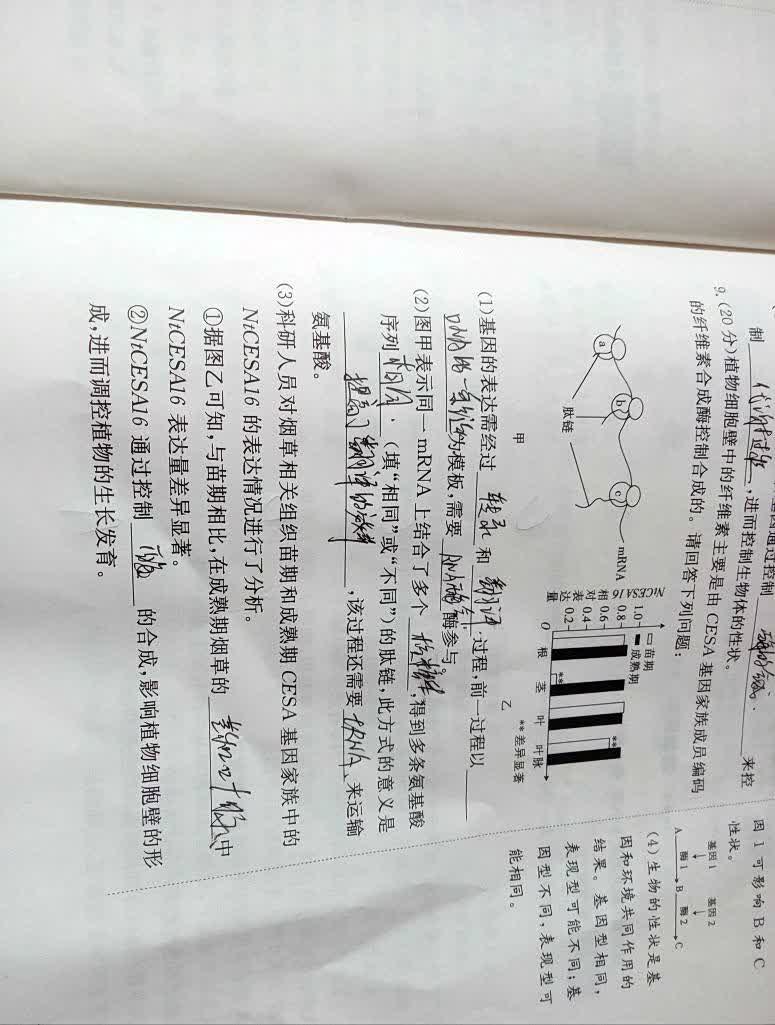 制 代谢过程,进而控制生物体的性状。
基因通过控制 酶的合成 来控
9.(20分)植物细胞壁中的纤维素主要是由CESA基因家族成员编码
的纤维素合成酶控制合成的。请回答下列问题:
a
b
c
肽链
mRNA
甲
NtCESA16相对表达量
1.0
0.8
0.6
0.4
0.2
0
苗期
成熟期
**
**
根 茎 叶 叶脉
**差异显著
乙
(1)基因的表达需经过 转录 和 翻译 过程,前一过程以
DNA的一条链为模板,需要 RNA聚合 酶参与。
(2)图甲表示同一mRNA上结合了多个 核糖体,得到多条氨基酸
序列 相同 (填“相同”或“不同”)的肽链,此方式的意义是
提高了翻译的效率,该过程还需要 tRNA 来运输
氨基酸。
(3)科研人员对烟草相关组织苗期和成熟期CESA基因家族中的
NtCESA16的表达情况进行了分析。
①据图乙可知,与苗期相比,在成熟期烟草的 茎和叶脉 中
NtCESA16表达量差异显著。
②NtCESA16通过控制 酶 的合成,影响植物细胞壁的形
成,进而调控植物的生长发育。
因1可影响B和C
性状。
基因1 基因2
A 酶1 B 酶2 C
(4)生物的性状是基
因和环境共同作用的
结果。基因型相同,
表现型可能不同;基
因型不同,表现型可
能相同。